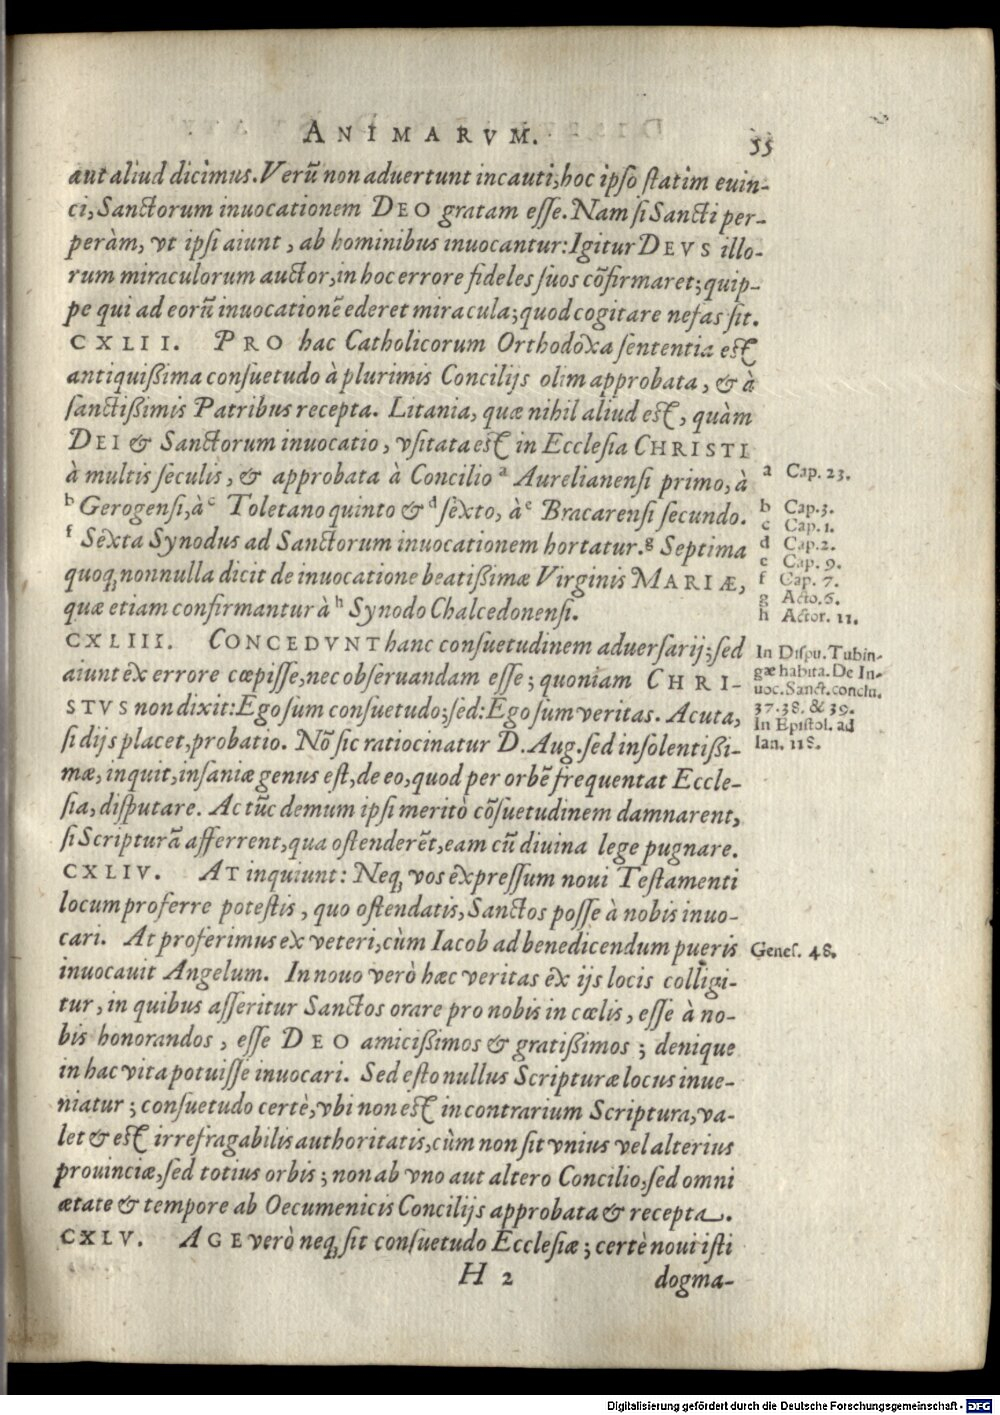 ANIMARVM. 55
aut aliud dicimus. Verũ non aduertunt incauti, hoc ipso statim euin-
ci, Sanctorum inuocationem DEO gratam esse. Nam si Sancti per-
peràm, vt ipsi aiunt, ab hominibus inuocantur: Igitur DEVS illo-
rum miraculorum auctor, in hoc errore fideles suos cõfirmaret; quip-
pe qui ad eorũ inuocationẽ ederet miracula; quod cogitare nefas sit.
CXLII. PRO hac Catholicorum Orthodoxa sententia est
antiquißima consuetudo à plurimis Concilijs olim approbata, & à
sanctißimis Patribus recepta. Litania, quæ nihil aliud est, quàm
DEI & Sanctorum inuocatio, vsitata est in Ecclesia CHRISTI
à multis seculis, & approbata à Concilio ᵃ Aurelianensi primo, à
ᵇ Gerogensi, à ᶜ Toletano quinto & ᵈ sexto, à ᵉ Bracarensi secundo.
ᶠ Sexta Synodus ad Sanctorum inuocationem hortatur. ᵍ Septima
quoq; nonnulla dicit de inuocatione beatißimæ Virginis MARIÆ,
quæ etiam confirmantur à ʰ Synodo Chalcedonensi.
a Cap. 23.
b Cap. 3.
c Cap. 1.
d Cap. 2.
e Cap. 9.
f Cap. 7.
g Acto. 6.
h Actor. 11.
CXLIII. CONCEDVNT hanc consuetudinem aduersarij; sed
aiunt ex errore cœpisse, nec obseruandam esse; quoniam CHRI-
STVS non dixit: Ego sum consuetudo; sed: Ego sum veritas. Acuta,
si dijs placet, probatio. Nõ sic ratiocinatur D. Aug. sed insolentißi-
mæ, inquit, insaniæ genus est, de eo, quod per orbẽ frequentat Eccle-
sia, disputare. Ac tũc demum ipsi meritò cõsuetudinem damnarent,
si Scripturã afferrent, qua ostenderẽt, eam cũ diuina lege pugnare.
In Dispu. Tubin-
gæ habita. De In-
uoc. Sanct. conclu.
37. 38. & 39.
In Epistol. ad
Ian. 118.
CXLIV. AT inquiunt: Neq; vos expressum noui Testamenti
locum proferre potestis, quo ostendatis, Sanctos posse à nobis inuo-
cari. At proferimus ex veteri, cùm Iacob ad benedicendum pueris
inuocauit Angelum. In nouo verò hæc veritas ex ijs locis colligi-
tur, in quibus asseritur Sanctos orare pro nobis in cœlis, esse à no-
bis honorandos, esse DEO amicißimos & gratißimos; denique
in hac vita potuisse inuocari. Sed esto nullus Scripturæ locus inue-
niatur; consuetudo certè, vbi non est in contrarium Scriptura, va-
let & est irrefragabilis authoritatis, cùm non sit vnius vel alterius
prouinciæ, sed totius orbis; non ab vno aut altero Concilio, sed omni
ætate & tempore ab Oecumenicis Concilijs approbata & recepta.
Genes. 48.
CXLV. AGE verò neq; sit consuetudo Ecclesiæ; certè noui isti
H 2 dogma-
Digitalisierung gefördert durch die Deutsche Forschungsgemeinschaft - DFG